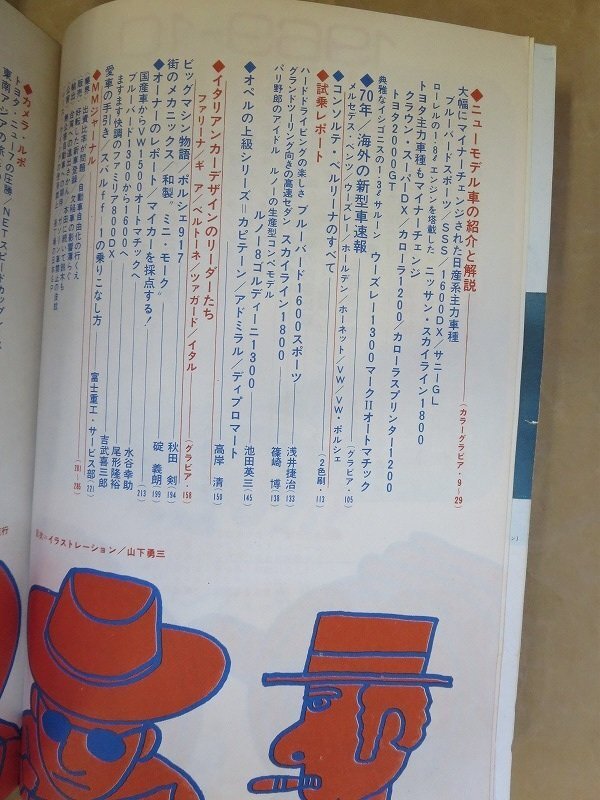 ◆ニューモデル車の紹介と解説（カラーグラビア・9－29）
大幅にマイナーチェンジされた日産系主力車種
ブルーバードスポーツ・SSS／1600DX／サニーGL
ローレルの1・8ℓエンジンを搭載した ニッサン・スカイライン1800
トヨタ主力車種もマイナーチェンジ
クラウン・スーパーDX／カローラ1200／カローラスプリンター1200
トヨタ2000GT
典雅なイシゴニスの1・3ℓサルーン ウーズレー1300マークIIオートマチック
◆70年 海外の新型車速報（グラビア・105）
メルセデス・ベンツ／ウーズレー／ホールデン／ホーネット／VW／VW・ポルシェ
◆コンソルテ・ベルリーナのすべて（2色刷・113）
◆試乗レポート
ハードドライビングの楽しさ ブルーバード1600スポーツ 浅井捷治 133
グランドツーリング向きの高速セダン スカイライン1800 篠崎 博 138
パリ野郎のアイドル ルノーの生産型コンペモデル
ルノー8ゴルディーニ1300 池田英三 145
オペルの上級シリーズ＝カピテーン／アドミラル／ディプロマート 高岸 清 150
◆イタリアンカーデザインのリーダーたち
ファリーナ／ギア／ベルトーネ／ツァガード／イタル（グラビア・158）
ビッグマシン物語 ポルシェ917 秋田 剣 194
街のメカニックス 和製〝ミニ・モーク〟 碇 義朗 199
◆オーナーのレポート／マイカーを採点する！（213）
国産車からVW1500オートマチックへ 水谷幸助
ブルーバード1300から1600へ 尾形隆裕
ますます快調のファミリア800DX 吉武喜三郎
愛車の手引き／スバルff－1の乗りこなし方 富士重工・サービス部 221
◆MMジャーナル（281－286）
◆カメラ・ルポ
イラストレーション／山下勇三